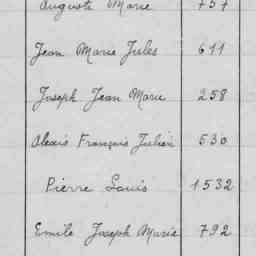 Auguste Marie 757
Jean Marie Jules 611
Joseph Jean Marie 258
Alexis François Julien 530
Pierre Louis 1532
Emile Joseph Marie 792